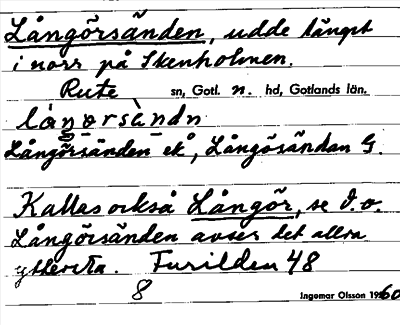 Långörsänden, udde längst
i norr på Skenholmen.
Rute sn, Gotl. n. hd, Gotlands län.
Långörsänden ek, Långösändan G.
Kallas också Långör, se d.o.
Långörsänden avser det allra
yttersta. Furilden 48
8 Ingemar Olsson 1960